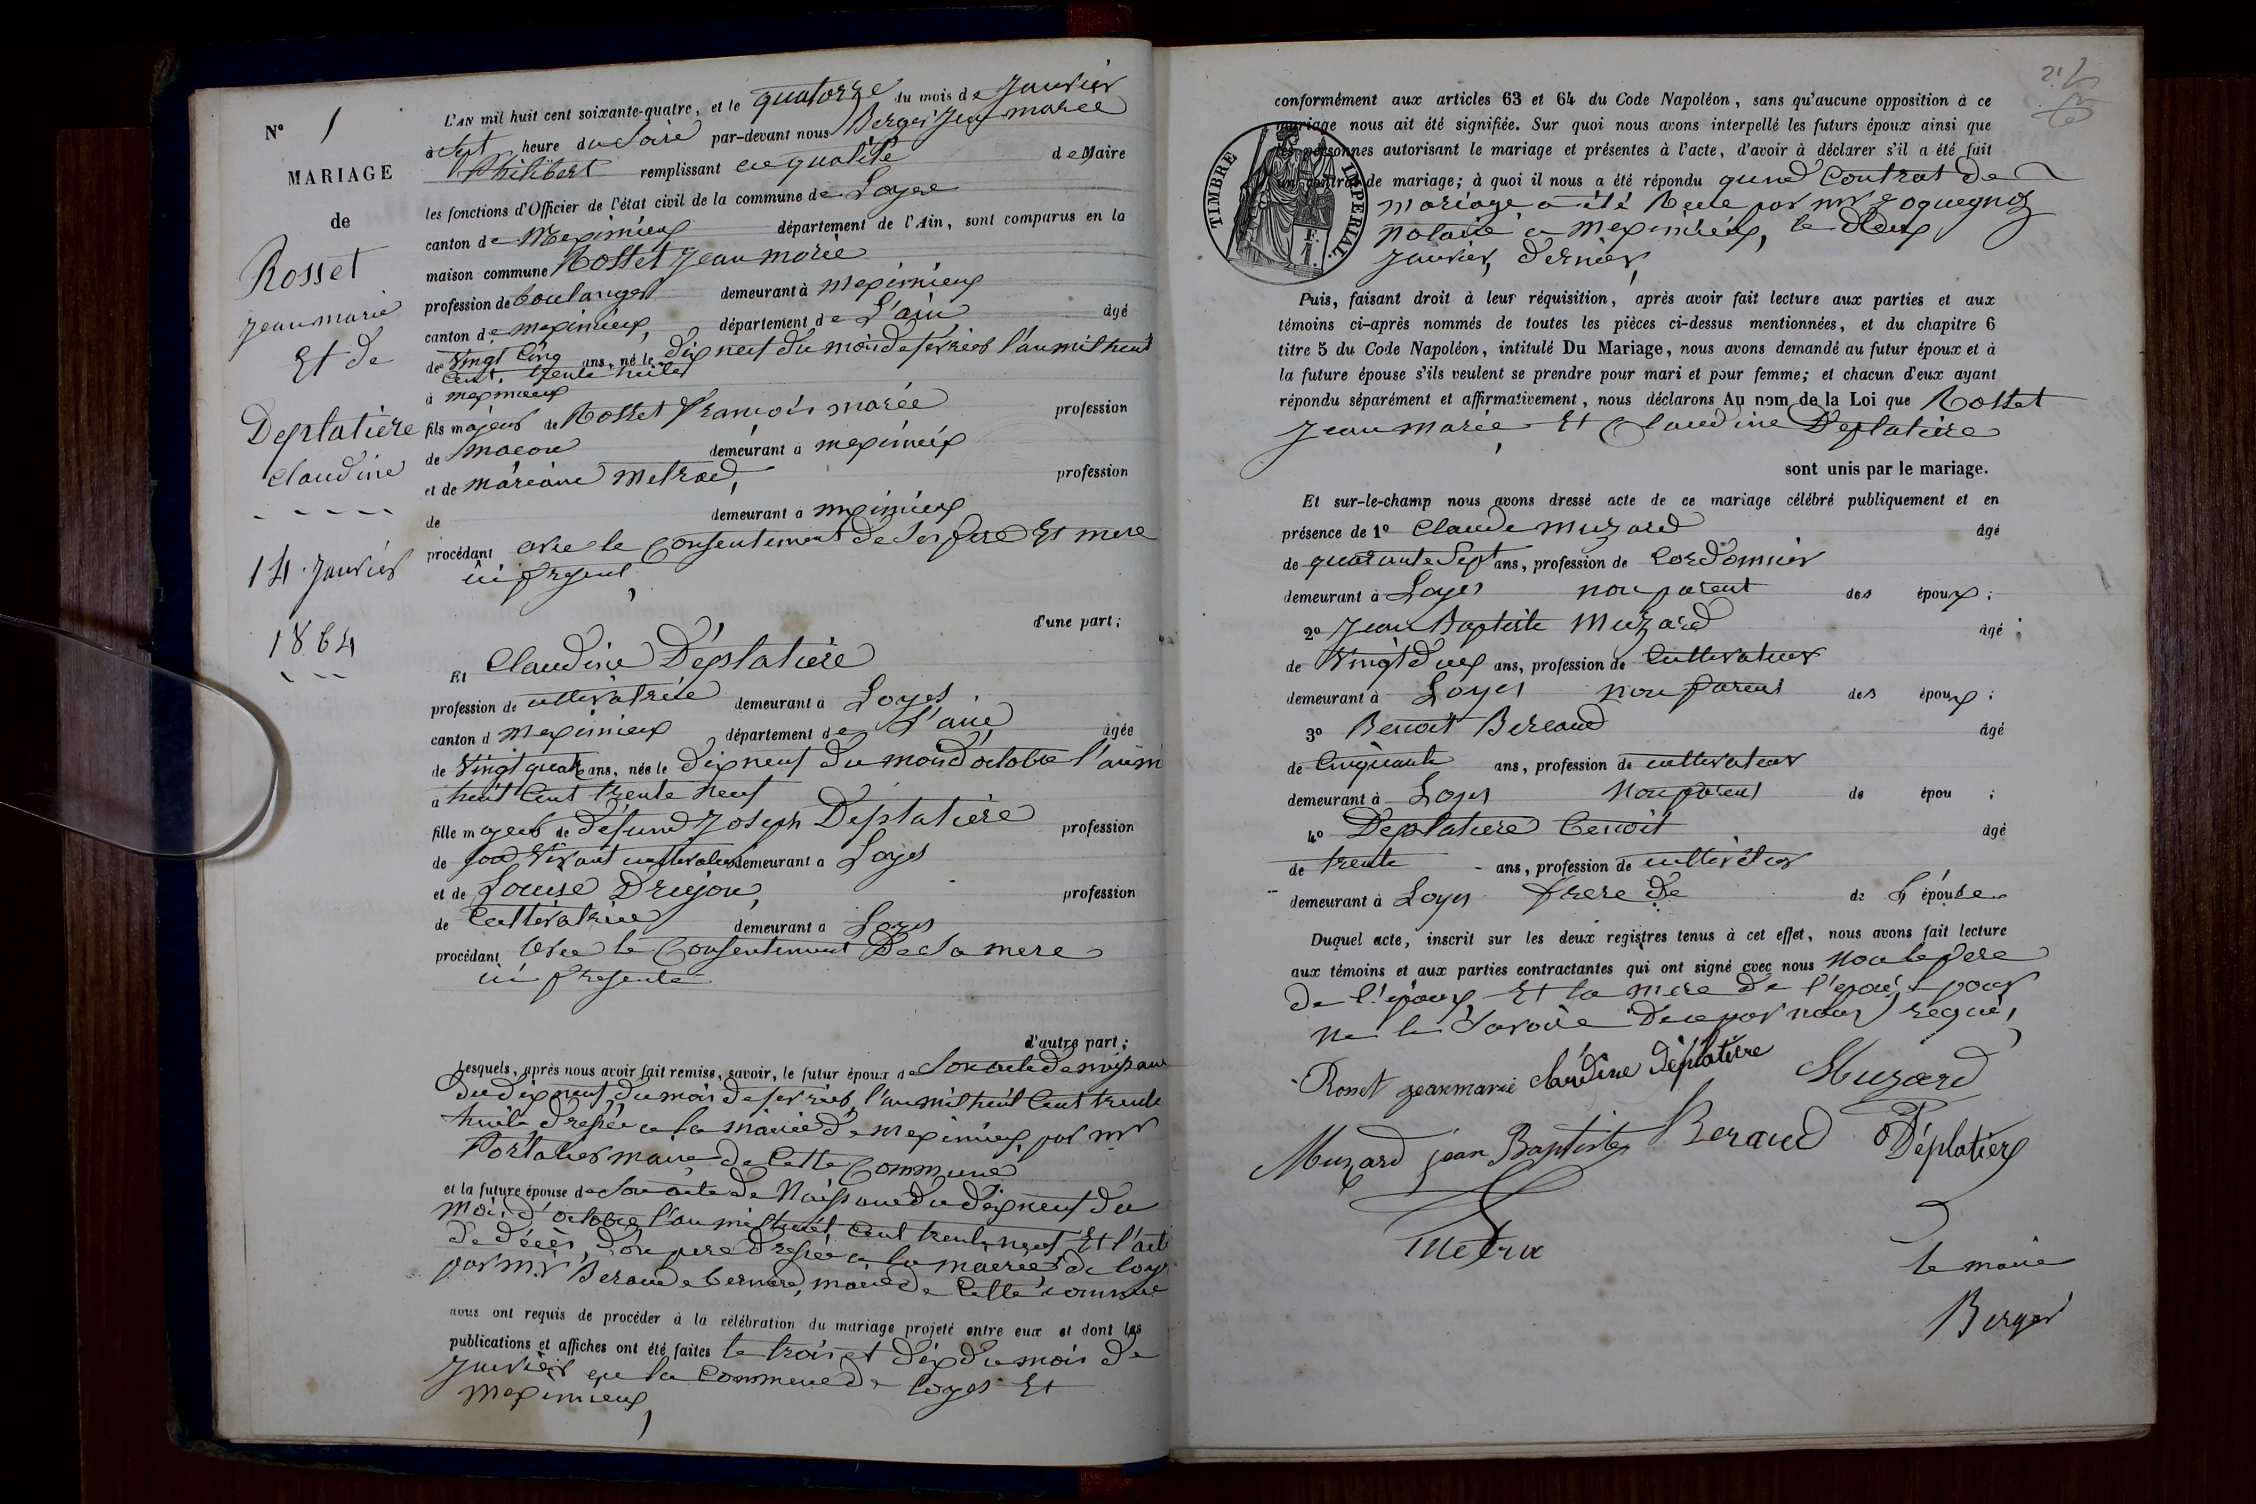 N° 1
MARIAGE
de
Rosset
Jean marie
Et de
Deplatière
Claudine
14 Janvier
1864
L'AN mil huit cent soixante-quatre, et le quatorze du mois de Janvier
à Sept heure du Soire par-devant nous Berger Jean marie
Philibert remplissant en qualité de Maire
les fonctions d'Officier de l'état civil de la commune de Loyes
canton de Meximieux département de l'Ain, sont comparus en la
maison commune Rosset Jean marie
profession de boulanger demeurant à meximieux
canton de meximieux, département de L'ain âgé
de Vingt Cinq ans, né le dix neuf du mois de fevrier l'an mil huit
Cent trente huite
à meximieux
fils majeur de Rosset François marie profession
de macon demeurant à meximieux
et de mariane metrad, profession
de demeurant à meximieux
procédant avec le Consentement de Son pere Et mere
ici present,
d'une part;
Et Claudine Déplatière
profession de cultivatrice demeurant à Loyes.
canton d meximieux département de L'ain âgée
de Vingt quatre ans, née le dix neuf du mois d'octobre l'an mi
à huit Cent trente neuf
fille majeur de défund Joseph Déplatière profession
de Son Vivant cultivateur demeurant à Loyes
et de Louise Drujon, profession
de Cultivatrice demeurant à Loyes
procédant avec le Consentement De Sa mere
ici presente
d'autre part;
Lesquels, après nous avoir fait remise, savoir, le futur époux de Son acte de naissance
du dix neuf du mois de fevrier, l'an mil huit Cent trente
huite dressée a la mairie de meximieux, par mr
Portalier maire de Cette Commune
et la future épouse de Son acte de Naissance du dix neuf du
mois d'octobre l'an mil huit Cent trente neuf Et l'acte
de décès, d'on pere dressée a la mairie de loyes
par mr Beraud bernard, maire de Cette commune
nous ont requis de procéder à la célébration du mariage projeté entre eux et dont les
publications et affiches ont été faites le trois et dix du mois de
Janvier en la Commune de loyes Et
meximieux,
conformément aux articles 63 et 64 du Code Napoléon, sans qu'aucune opposition à ce
mariage nous ait été signifiée. Sur quoi nous avons interpellé les futurs époux ainsi que
les personnes autorisant le mariage et présentes à l'acte, d'avoir à déclarer s'il a été fait
un contrat de mariage; à quoi il nous a été répondu qund Contrat de
mariage a été Recue par mr
notaire a meximieux, le deux
Janvier, dernier,
TIMBRE IMPÉRIAL.
Puis, faisant droit à leur réquisition, après avoir fait lecture aux parties et aux
témoins ci-après nommés de toutes les pièces ci-dessus mentionnées, et du chapitre 6
titre 5 du Code Napoléon, intitulé Du Mariage, nous avons demandé au futur époux et à
la future épouse s'ils veulent se prendre pour mari et pour femme; et chacun d'eux ayant
répondu séparément et affirmativement, nous déclarons Au nom de la Loi que Rosset
Jean marie, Et Claudine Deplatière
sont unis par le mariage.
Et sur-le-champ nous avons dressé acte de ce mariage célébré publiquement et en
présence de 1° Claude Muzard âgé
de quarante Sept ans, profession de Cordonnier
demeurant à Loyes non parent des époux;
2° Jean Baptiste Muzard âgé
de Vingt deux ans, profession de Cultivateur
demeurant à Loyes non parent des époux;
3° Benoit Bereaud âgé
de Cinquante ans, profession de cultivateur
demeurant à Loyes Non parent de épou ;
4° Deplatiere Benoit âgé
de trente ans, profession de cultivateur
demeurant à Loyes frere de de L'épouse
Duquel acte, inscrit sur les deux registres tenus à cet effet, nous avons fait lecture
aux témoins et aux parties contractantes qui ont signé avec nous Non le pere
de l'époux Et la mere de l'epouse pour
ne le Savoire de ce par nous requi,
Rosset jeanmarie Claudine Déplatière Muzard
Muzard jean Baptiste Beraud Déplatiere
Metra
le maire
Berger